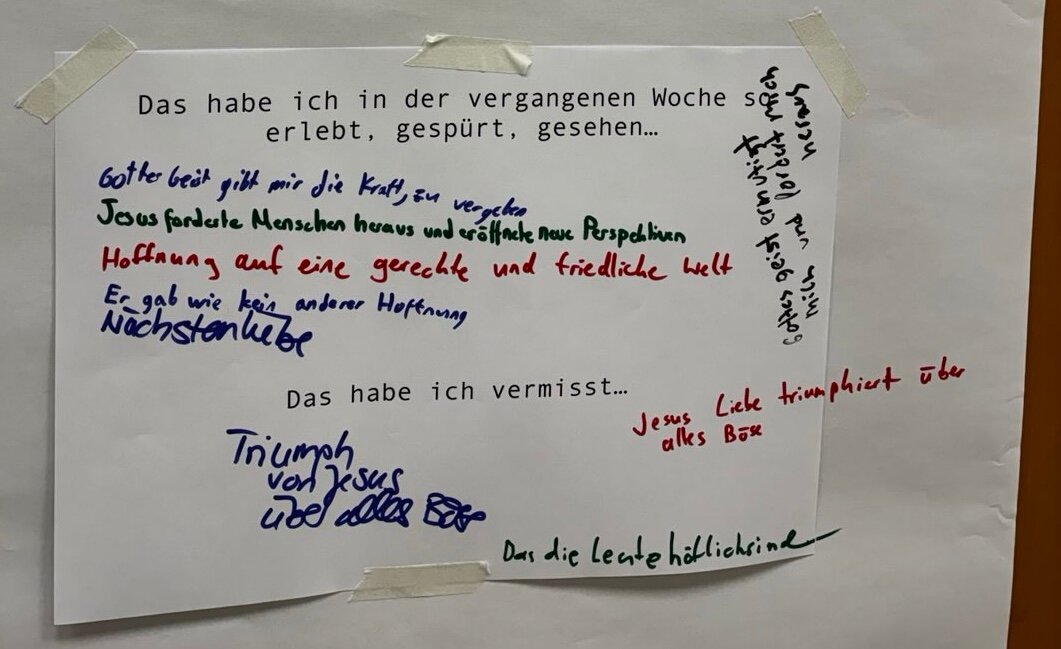 Das habe ich in der vergangenen Woche so
erlebt, gespürt, gesehen…
Gottes Geist ermutigt
und fordert mich
mir und heraus
Gottes Geist gibt mir die Kraft, zu vergeben
Jesus forderte Menschen heraus und eröffnete neue Perspektiven
Hoffnung auf eine gerechte und friedliche Welt
Er gab wie kein anderer Hoffnung
Nächstenliebe
Das habe ich vermisst…
Jesus Liebe triumphiert über
alles Böse
Triumph
von Jesus
über alles Böse
Das die Leute höflich sind